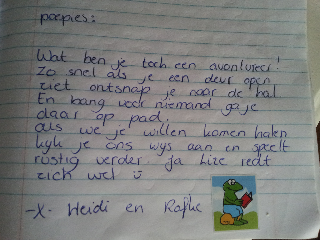 poepies:
Wat ben je toch een avonturier!
Zo snel als je een deur open
ziet ontsnap je naar de hal
En bang voor niemand ga je
daar op pad.
als we je willen komen halen
kijk je ons wijs aan en speelt
rustig verder. ja Lize redt
zich wel ü
-x- Heidi en